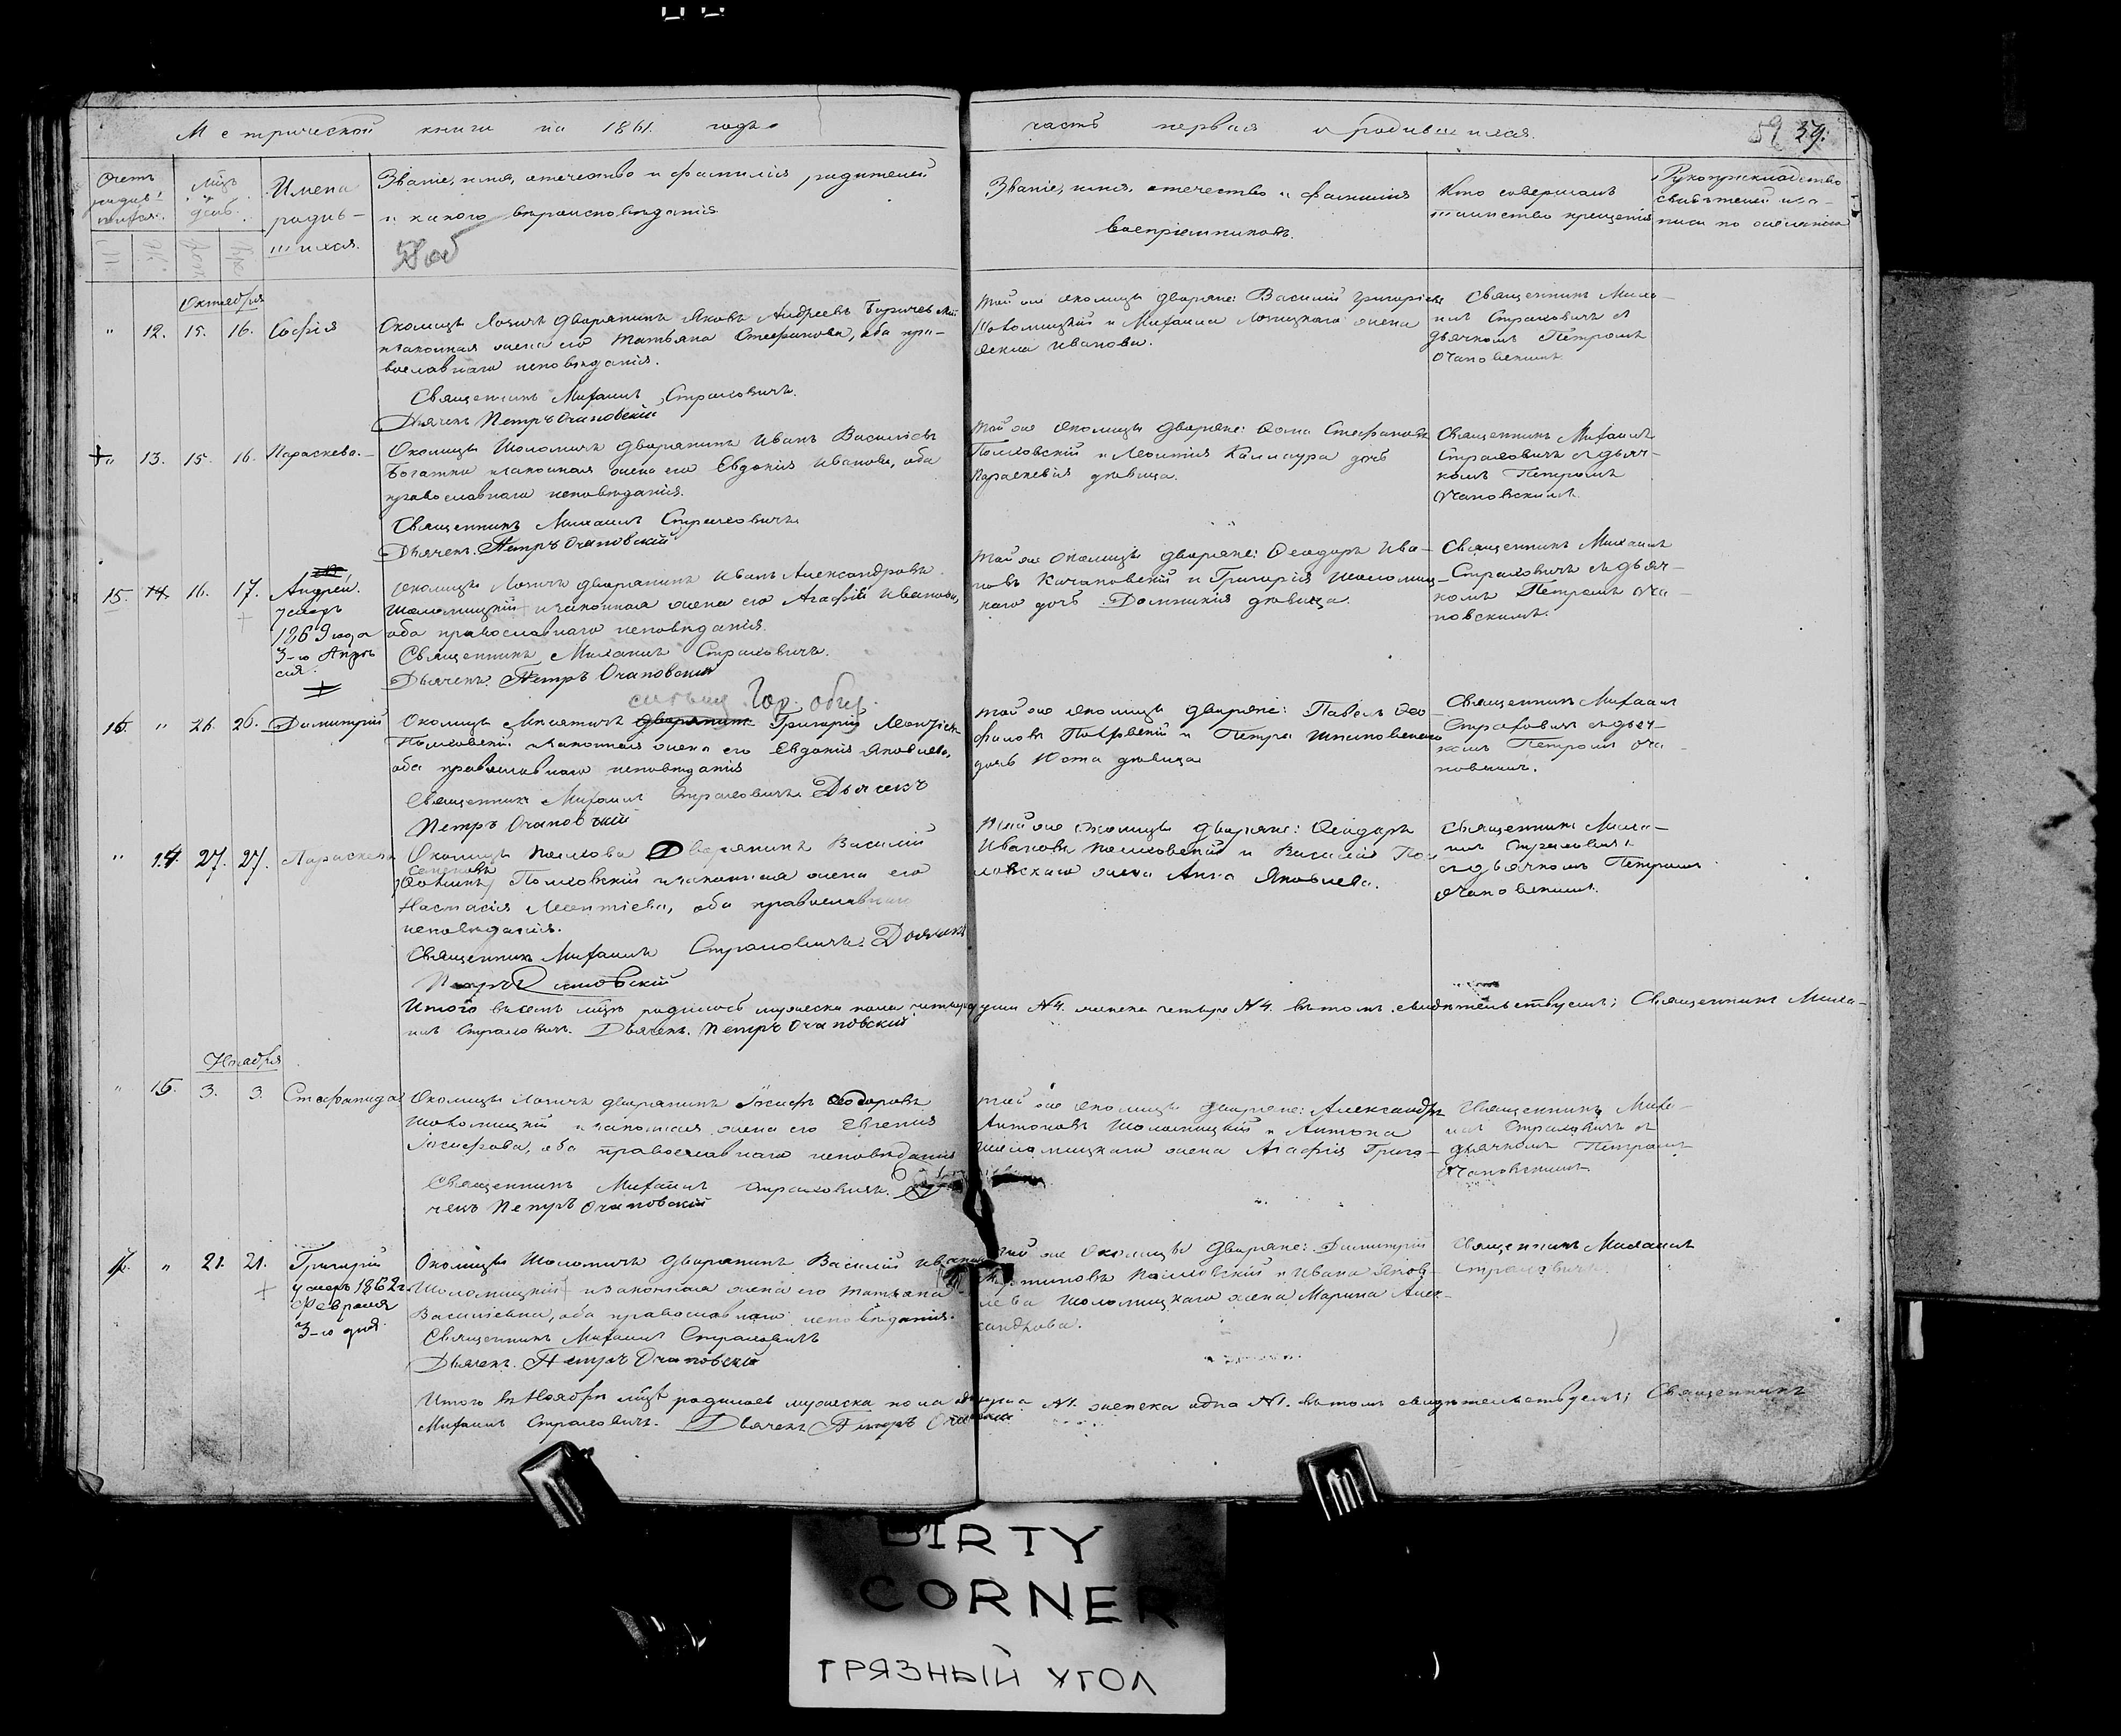 Метрической книги на 1861. годъ
часть первая о родившихся.
59 39.
Счетъ родив- шихся.
Мцъ и день.
Имена родив- шихся.
Званіе, имя, отечество и фамилія родителей
и какого вѣроисповѣданія
58 об
Званіе, имя, отечество и фамилія
воспріемниковъ.
Кто совершалъ
таинство крещенія
Рукоприкладство
свидѣтелей
писи по желанію
М. Ж.
Октября
" 12. 15. 16. Софія
Околицы Лозичъ дворянинъ Яковъ Андреевъ
и законная жена его Татьяна Стефанова, оба пра-
вославнаго исповѣданія.
Священникъ Михаилъ Страховичъ.
Дьячекъ Петръ Очаповскій
Той же околицы дворяне: Василій Григорьевъ
и Михаила жена
Иванова.
Священникъ Миха-
илъ Страховичъ съ
дьячкомъ Петромъ
Очаповскимъ.
" 13. 15. 16. Параскева.
Околицы Шоломичъ дворянинъ Иванъ Васильевъ
Богатко и законная жена его Евдокія Иванова, оба
православнаго исповѣданія.
Священникъ Михаилъ Страховичъ
Дьячекъ Петръ Очаповскій
Той же околицы дворяне: Ѳома Стефановъ
Полховскій и Леонтія дочь
Параскевія дѣвица.
Священникъ Михаилъ
Страховичъ съ дьяч-
комъ Петромъ
Очаповскимъ.
15. 14. 16. 17. Андрей.
умеръ
1869 года
3-го Апрѣ
ля.
Околицы Лозичъ дворянинъ Иванъ Александровъ
Шоломицкій и законная жена его Агафія Иванова,
оба православнаго исповѣданія.
Священникъ Михаилъ Страховичъ.
Дьячекъ Петръ Очаповскій
Той же околицы дворяне: Ѳеодоръ Ива-
новъ Качановскій и Григорія Шоломиц-
каго дочь Домникія дѣвица.
Священникъ Михаилъ
Страховичъ съ дьяч-
комъ Петромъ Оча-
повскимъ.
Гор. общ.
16. " 26. 26. Димитрій
Околицы дворянинъ Григорій Леонтіевъ
Полховскій и законная жена его Евдокія Яковлева,
оба православнаго исповѣданія
Священникъ Михаилъ Страховичъ. Дьячекъ
Петръ Очаповскій
Той же околицы дворяне: Павелъ Ѳео-
филовъ и Петра
дочь Юста дѣвица
Священникъ Михаилъ
Страховичъ съ дьяч-
комъ Петромъ Оча-
повскимъ.
" 14. 27. 27. Параскева
Околицы Полхова Дворянинъ Василій
Семеновъ
Полховскій и законная жена его
Настасія Леонтіева, оба православнаго
исповѣданія.
Священникъ Михаилъ Страховичъ. Дьячекъ
Петръ Очаповскій
Той же околицы дворяне: Ѳеодоръ
Ивановъ Полховскій и Василія Пол-
ховскаго жена Анна Яковлева.
Священникъ Миха-
илъ Страховичъ
съ дьячкомъ Петромъ
Очаповскимъ.
Итого въ семъ мцѣ родилось мужеска пола четыре души №4. женска четыре №4. въ томъ свидѣтельствуемъ; Священникъ Миха-
илъ Страховичъ. Дьячекъ Петръ Очаповскій
Ноября
" 15. 3. 3. Стефанида
Околицы Лозичъ дворянинъ Іосифъ Ѳеодоровъ
Шоломицкій и законная жена его Евгенія
Іосифова, оба православнаго исповѣданія
Священникъ Михаилъ Страховичъ. Дья-
чекъ Петръ Очаповскій
Той же околицы дворяне: Александръ
Антоновъ Шоломицкій и Антона
Шоломицкаго жена Агафія Григо-
Священникъ Миха-
илъ Страховичъ съ
дьячкомъ Петромъ
Очаповскимъ
17. " 21. 21. Григорій
умеръ 1862 г.
Февраля
3-го дня.
Околицы Шоломичъ дворянинъ Василій Ивановъ
Шоломицкій и законная жена его Татьяна
Васильевна, оба православнаго исповѣданія.
Священникъ Михаилъ Страховичъ
Дьячекъ Петръ Очаповскій
Той же околицы Дворяне: Димитрій
Мартиновъ Полховскій и Ивана Яков-
лева Шоломицкаго жена Марина Алек-
сандрова.
Священникъ Михаилъ
Страховичъ.
Итого въ Ноябрѣ мцѣ родилось мужеска пола одна душа №1. женска одна №1. въ томъ свидѣтельствуемъ; Священникъ
Михаилъ Страховичъ. Дьячекъ Петръ Очаповскій
DIRTY
CORNER
ГРЯЗНЫЙ УГОЛ